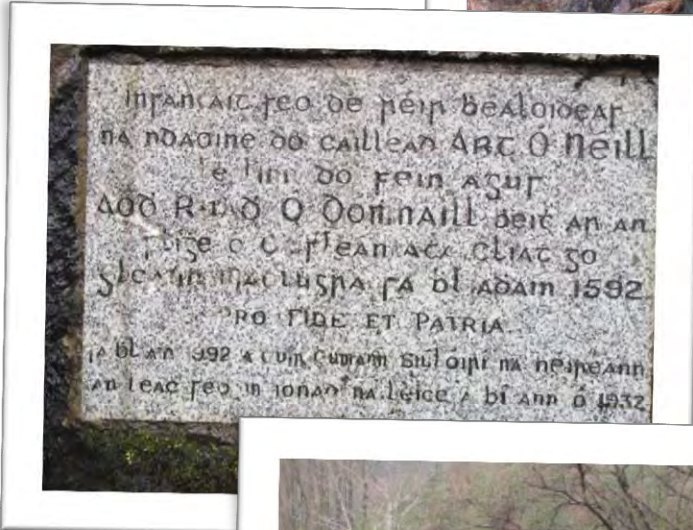 Insan áit seo de réir bealoideas
na ndaoine do cailleaḋ ART O Néill
le linn do féin agus
Aoḋ O Domnaill beiṫ ar an
slige ó Aṫa Cliaṫ go
gleann sa 1592
PRO FIDE ET PATRIA
sa 1992 a cuir Cumann Siulóirí na hÉireann
an leac seo in ionad na leice a bí ann ó 1932